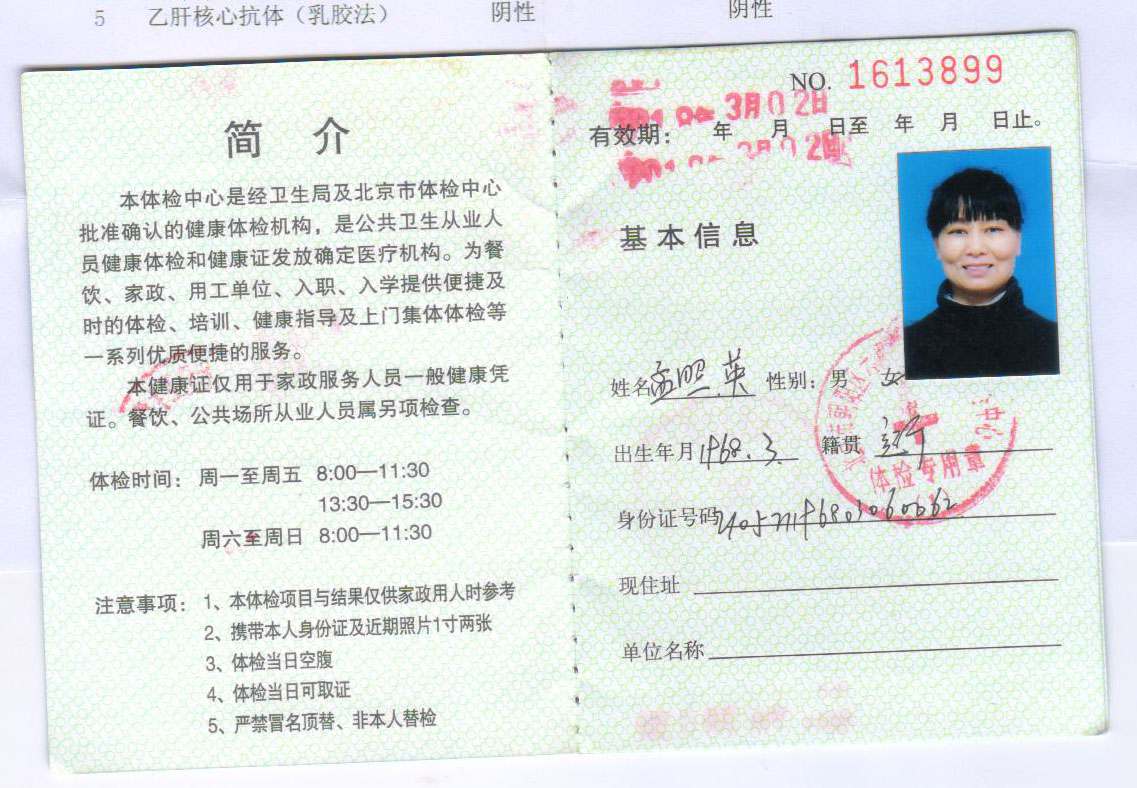 5 乙肝核心抗体（乳胶法） 阴性 阴性
简 介
本体检中心是经卫生局及北京市体检中心
批准确认的健康体检机构，是公共卫生从业人
员健康体检和健康证发放确定医疗机构。为餐
饮、家政、用工单位、入职、入学提供便捷及
时的体检、培训、健康指导及上门集体体检等
一系列优质便捷的服务。
本健康证仅用于家政服务人员一般健康凭
证。餐饮、公共场所从业人员属另项检查。
体检时间：周一至周五 8:00—11:30
13:30—15:30
周六至周日 8:00—11:30
注意事项：1、本体检项目与结果仅供家政用人时参考
2、携带本人身份证及近期照片1寸两张
3、体检当日空腹
4、体检当日可取证
5、严禁冒名顶替、非本人替检
NO. 1613899
3月02日
有效期： 年 月 日至 年 月 日止。
3月02日
基本信息
姓名 孟照英 性别：男 女
出生年月 1968.3. 籍贯
身份证号码
现住址
单位名称
体检专用章